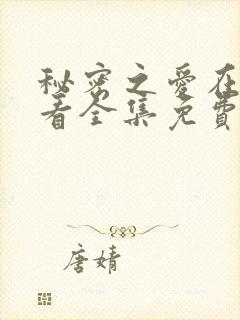 秘密之愛在
看全集免費
唐婧